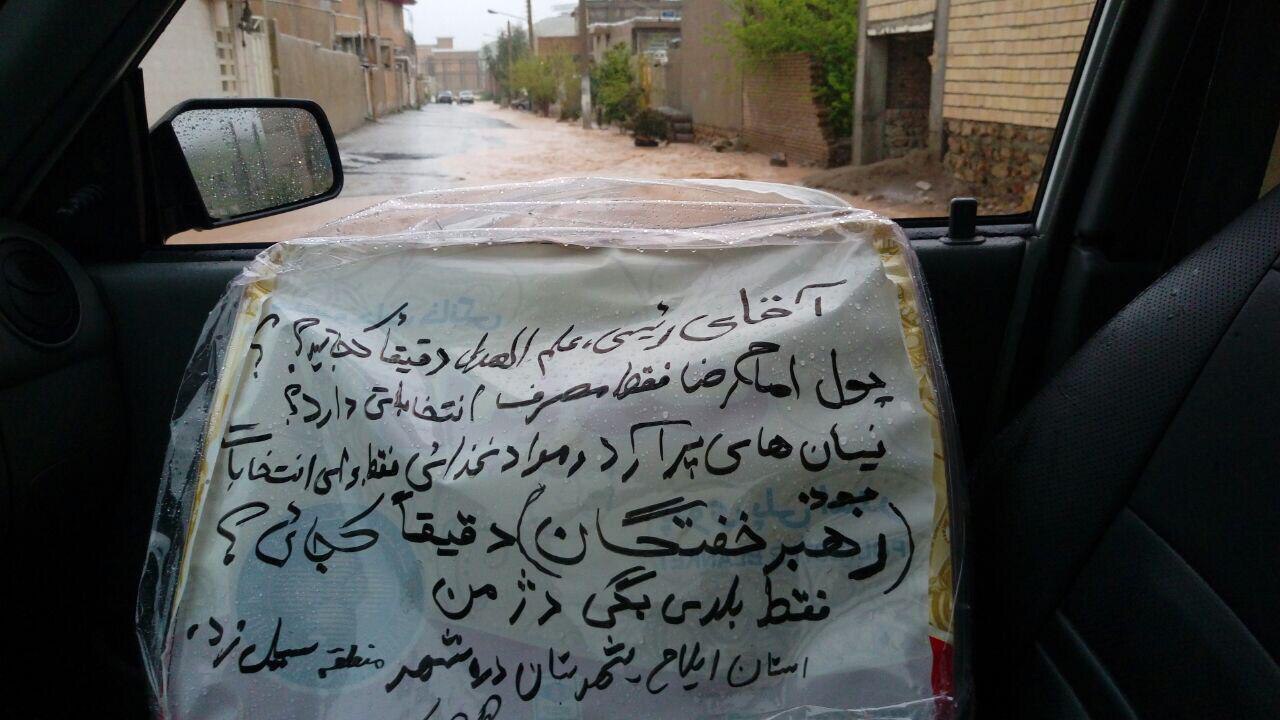 آقای رئیسی، علم الهدی دقیقاً کجایید؟؟ ؟
پول امام رضا فقط مصرف انتخاباتی دارد؟
نیسان های پر آرد و مواد غذائی فقط برای انتخابات
بود؟
(رهبر خفتگان) دقیقاً کجائی؟
فقط بلدی بگی دژمن
استان ایلام شهرستان دره شهر منطقه سیل زده